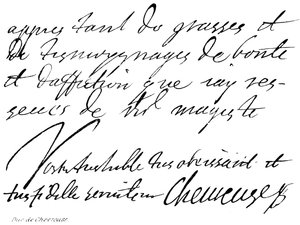 appres tant de grasses et
de tesmoygnages de bonte
et daffection que iay res-
seues de vtre mageste
Vostre tres humble tres obeissant et
tres fidelle serviteur Chevreuse
Duc de Chevreuse